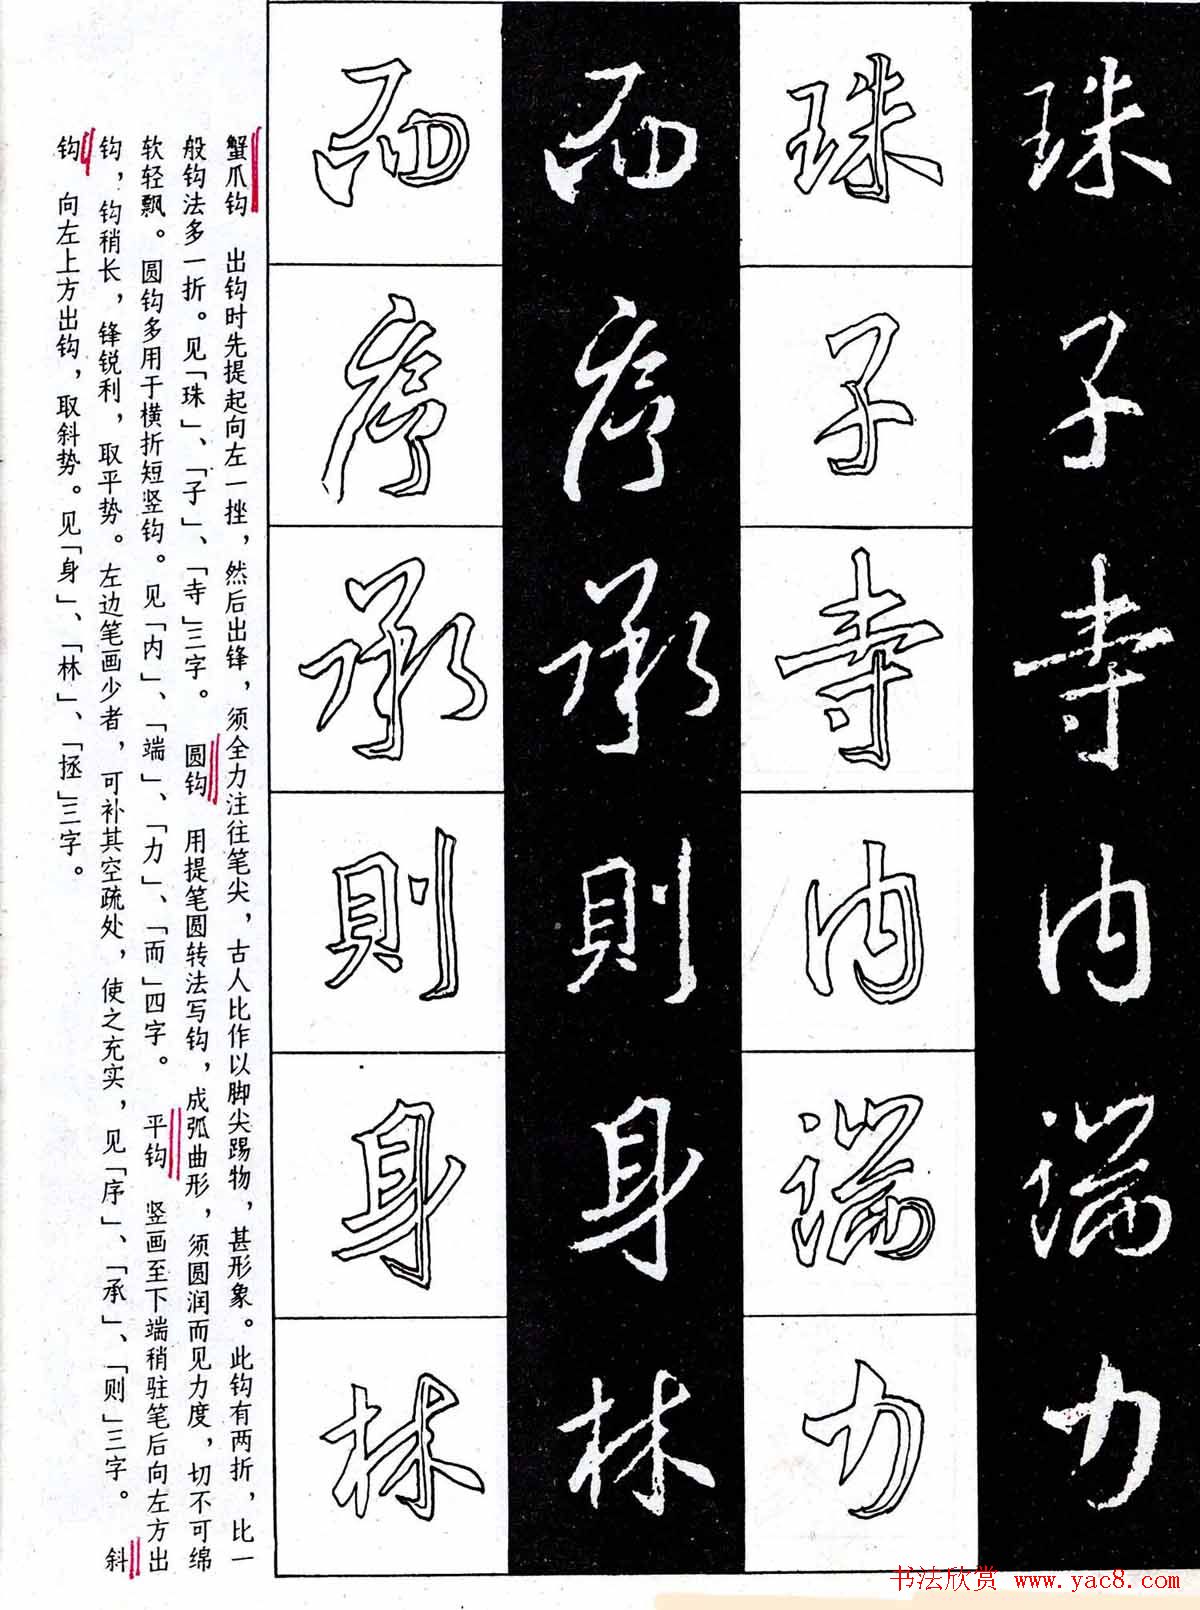 珠子寺内端力
珠子寺内端力
而序承則身林
而序承則身林
蟹爪钩 出钩时先提起向左一挫，然后出锋，须全力注往笔尖，古人比作以脚尖踢物，甚形象。此钩有两折，比一
般钩法多一折。见「珠」、「子」、「寺」三字。 圆钩 用提笔圆转法写钩，成弧曲形，须圆润而见力度，切不可绵
软轻飘。圆钩多用于横折短竖钩。见「内」、「端」、「力」、「而」四字。 平钩 竖画至下端稍驻笔后向左方出
钩，钩稍长，锋锐利，取平势。左边笔画少者，可补其空疏处，使之充实，见「序」、「承」、「则」三字。 斜
钩 向左上方出钩，取斜势。见「身」、「林」、「拯」三字。
书法欣赏 www.yac8.com